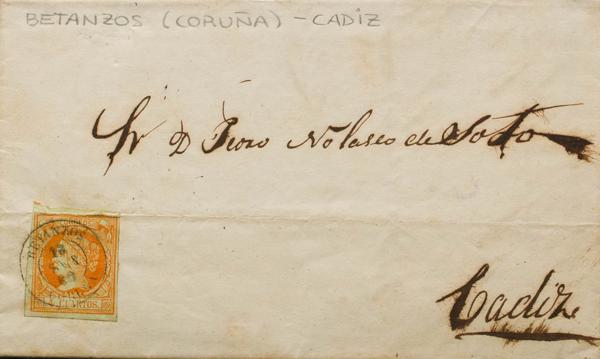 BETANZOS (CORUÑA) - CADIZ
Sr D Pedro Nolasco de Soto
BETANZOS
CUARTOS.
Cadiz